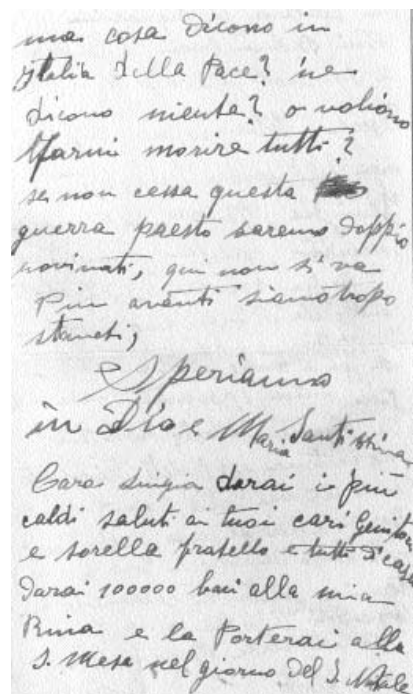 ma cosa dicono in
Italia della Pace? ne
dicono niente? o voliono
farni morire tutti?
se non cessa questa
guerra presto saremo doppio
rovinati, qui non si va
Piu avanti siamo tropo
stanchi,
Speriamo
in Dio e Maria Santissima
Cara Luigia darai i più
caldi saluti ai tuoi cari Genitori
e sorella fratello e tutti di casa
Darai 100000 baci alla mia
Rina e la Porterai alla
S. Mesa nel giorno del S. Natale